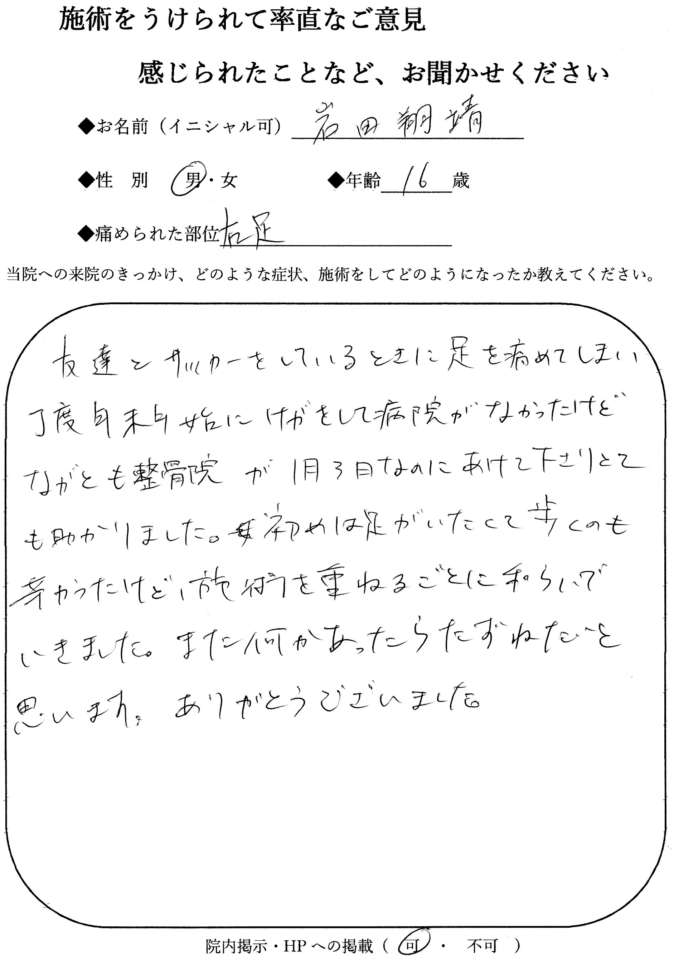 施術をうけられて率直なご意見
感じられたことなど、お聞かせください
◆お名前（イニシャル可） 岩田翔靖
◆性　別　男・女　◆年齢 16 歳
◆痛められた部位 右足
当院への来院のきっかけ、どのような症状、施術をしてどのようになったか教えてください。
友達とサッカーをしているときに足を痛めてしまい
丁度年末年始にけがをして病院がなかったけど
ながとも整骨院が1月3日なのにあけて下さりとて
も助かりました。初めは足がいたくて歩くのも
辛かったけど、施術を重ねるごとに和らいで
いきました。また何かあったらたずねたいと
思います。ありがとうございました。
院内掲示・HPへの掲載（ 可 ・ 不可 ）